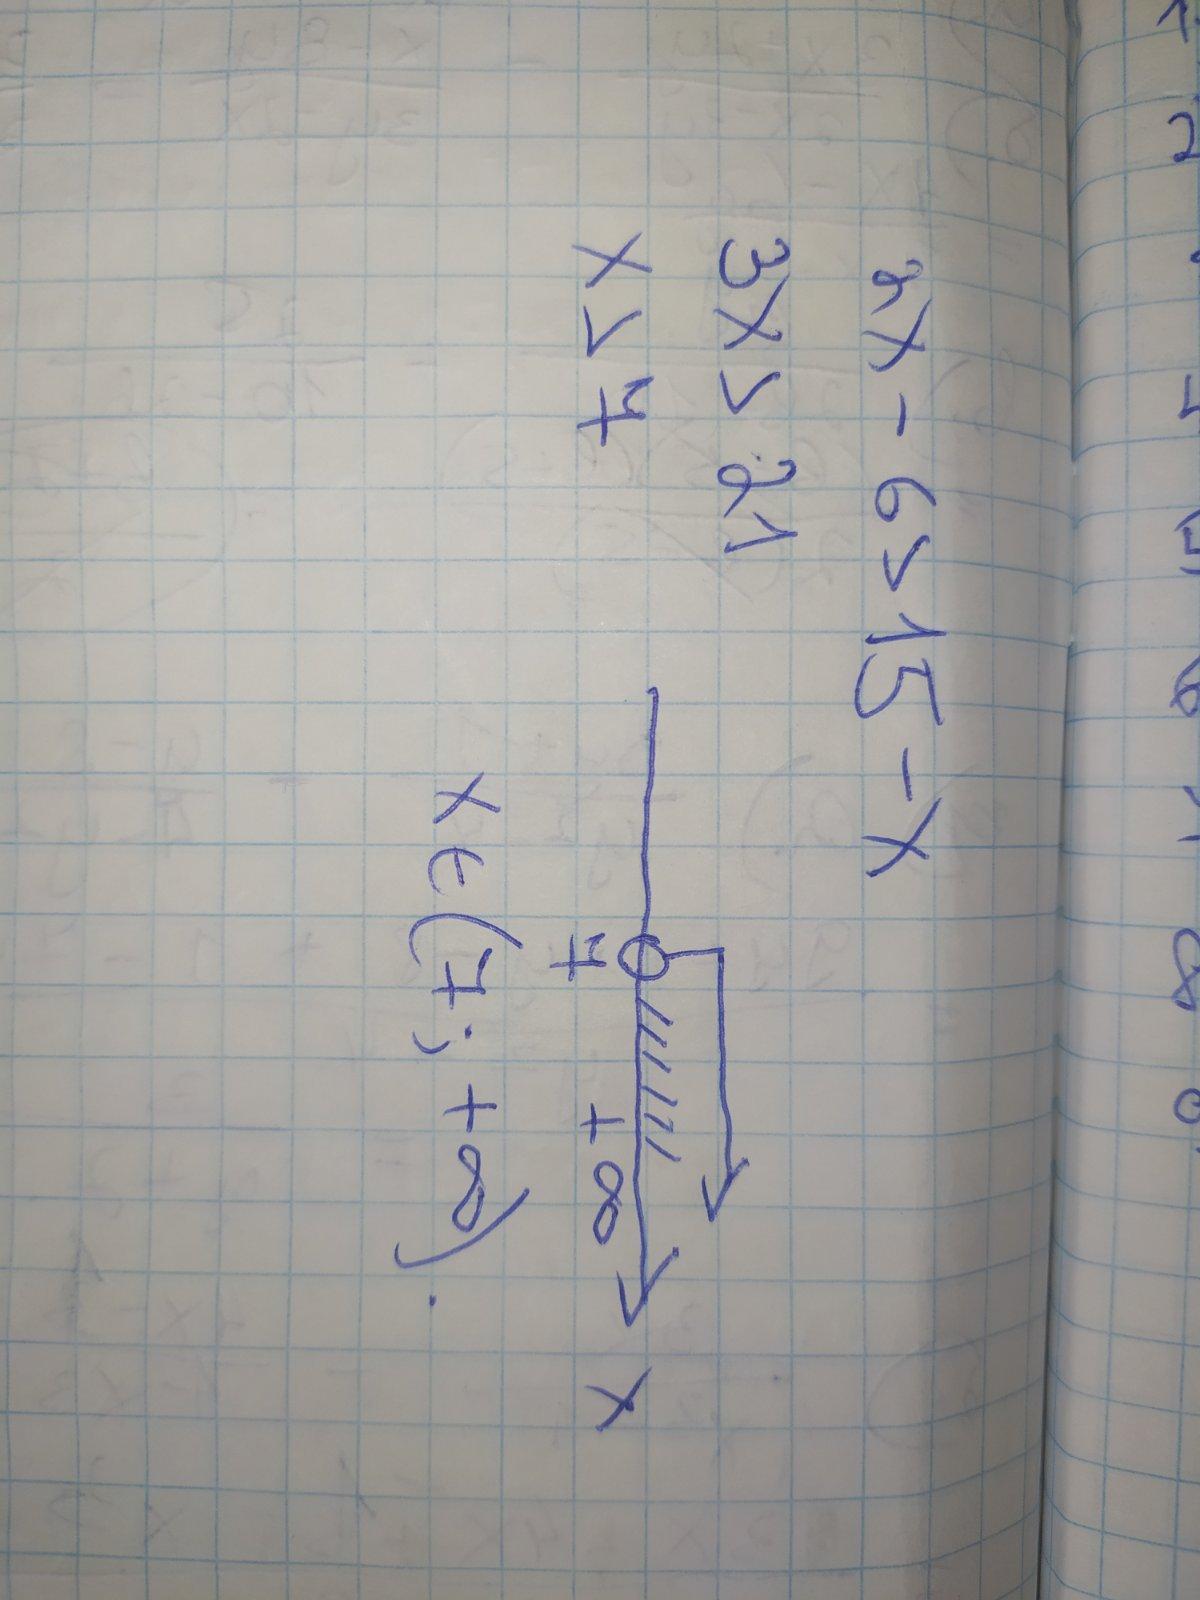 2x - 6 > 15 - x
3x > 21
x > 7
7 +∞ x
x ∈ (7; +∞).